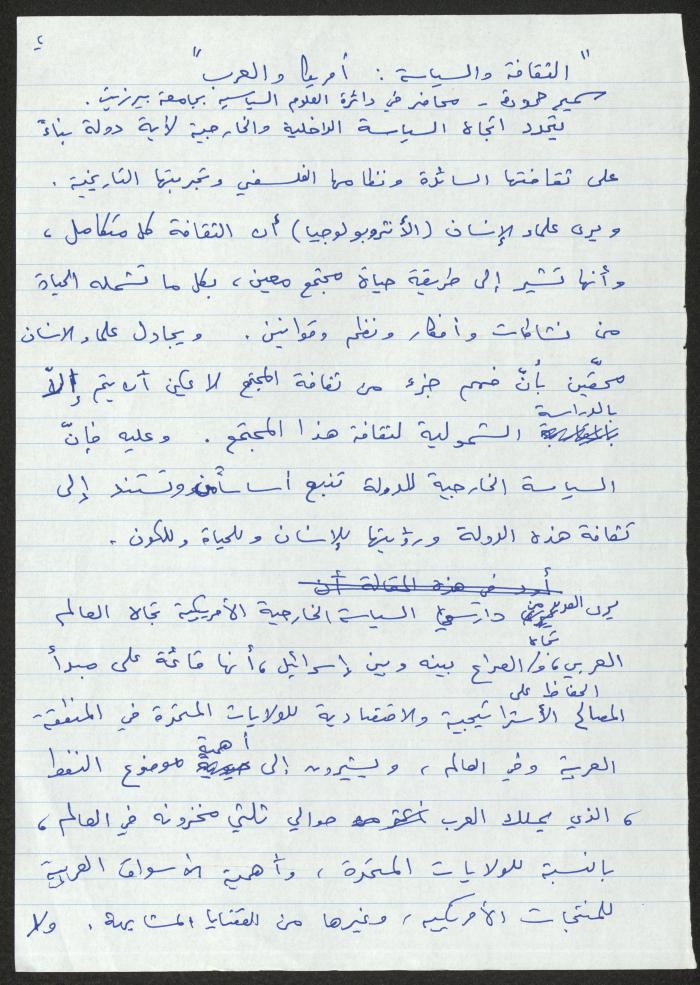 "الثقافة والسياسة : أمريكا والعرب"
سميح حمودة - محاضر في دائرة العلوم السياسيه بجامعة بيرزيت.
يتحدد اتجاه السياسة الداخلية والخارجية لأية دولة بناءً
على ثقافتها السائدة ونظامها الفلسفي وتجربتها التاريخية .
ويرى علماء الإنسان (الأنثروبولوجيا) أن الثقافة كل متكامل ،
وأنها تشير إلى طريقة حياة مجتمع معين ، بكل ما تشمله الحياة
من نشاطات وأفكار ونظم وقوانين . ويجادل علماء الانسان
محقّين بأنّ فهم جزء من ثقافة المجتمع لا يمكن أن يتم إلاّ
بالدراسة
الشمولية لثقافة هذا المجتمع . وعليه فإنّ
السياسة الخارجية للدولة تنبع أساساً من وتستند إلى
ثقافة هذه الدولة ورؤيتها للإنسان وللحياة وللكون .
أود في هذه المقالة أن
يرى العديد من دارسي السياسة الخارجية الأمريكية تجاه العالم
تجاه
العربي، و/ الصراع بينه وبين إسرائيل، أنها قائمة على مبدأ
الحفاظ على
المصالح الأستراتيجية والاقتصادية للولايات المتحدة في المنطقة
العربية وفي العالم ، ويشيرون إلى موضوع النفط
أهمية
، الذي يملك العرب حوالي ثلثي مخزونه في العالم ،
بالنسبة للولايات المتحدة ، وأهمية الأسواق العربية
للمنتجات الأمريكيه ، وغيرها من القضايا المشابهة . ولا